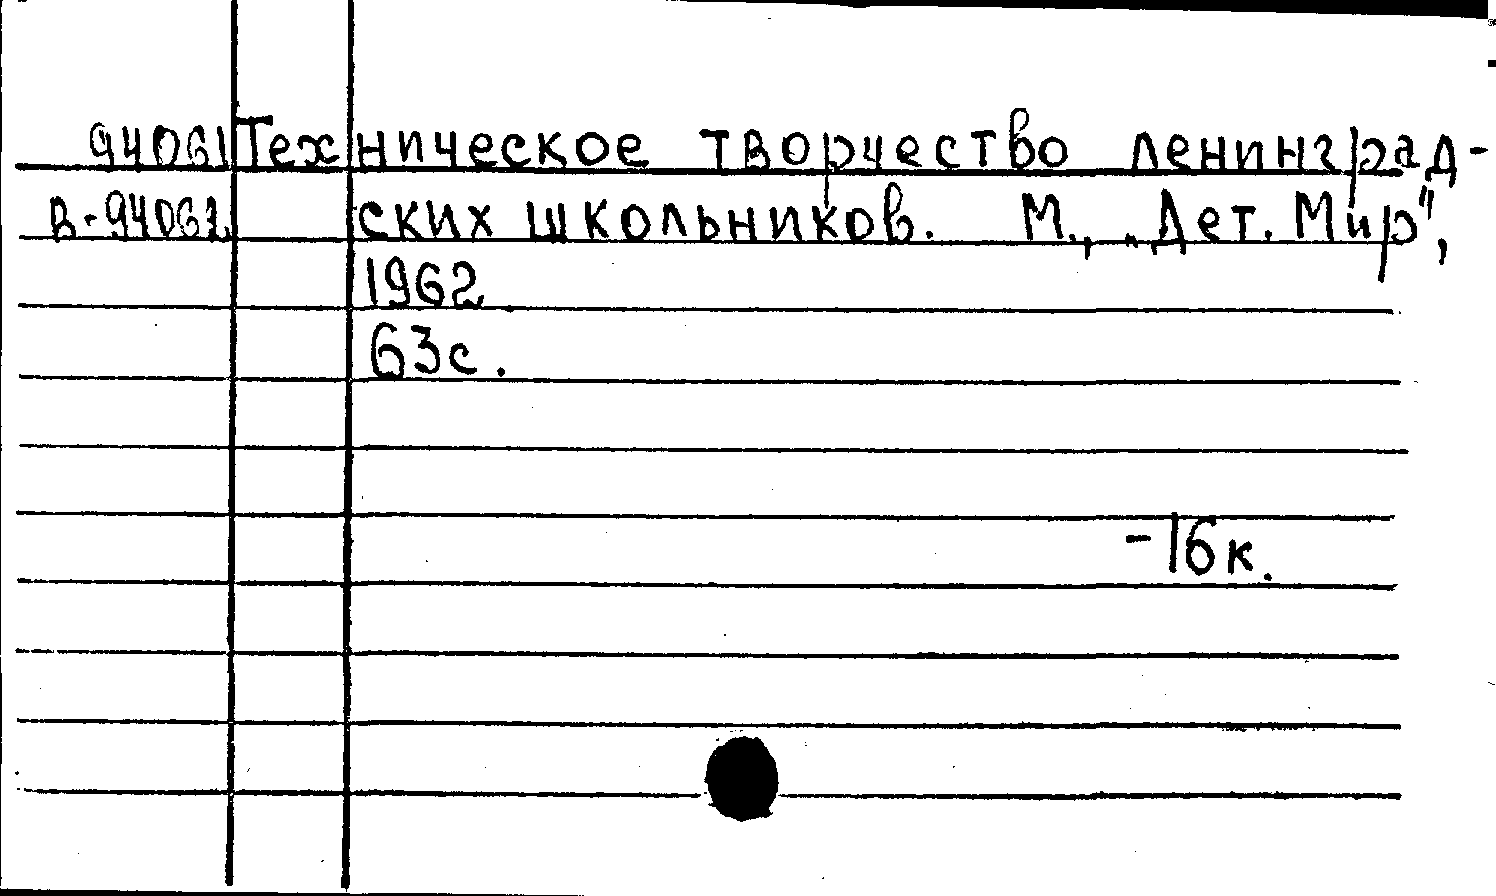 94061 Техническое творчество ленинград-
В-94062 ских школьников. М., „Дет. Мир",
1962
63с.
-16к.